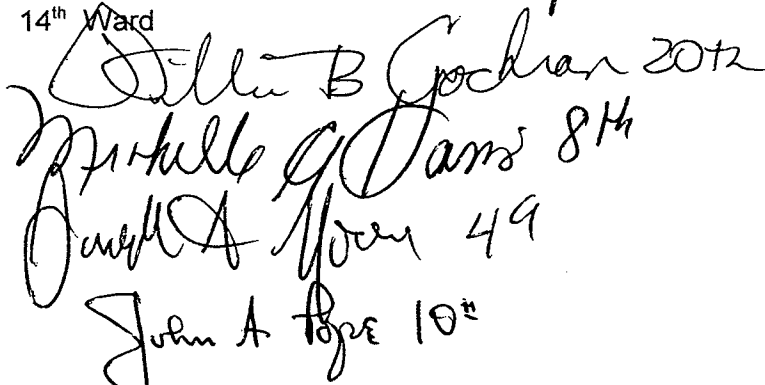 14th Ward
Willie B Cochran 20th
Michelle A Harris 8th
Joseph A Moore 49
John A Pope 10th